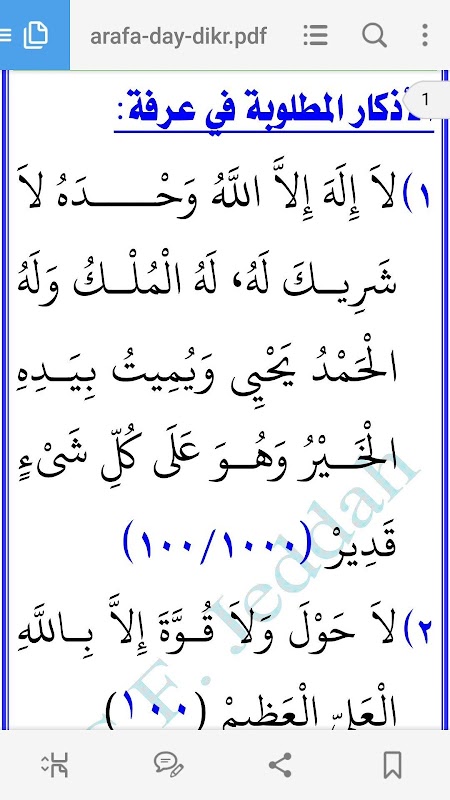 arafa-day-dikr.pdf
1
الأذكار المطلوبة في عرفة:
١) لاَ إِلَهَ إِلاَّ اللَّهُ وَحْـــــدَهُ لاَ
شَرِيــكَ لَهُ، لَهُ الْمُلْــكُ وَلَهُ
الْحَمْدُ يَحْيِي وَيُمِيتُ بِيَــدِهِ
الْخَــيْرُ وَهُــوَ عَلَى كُلِّ شَىْءٍ
قَدِيرْ (١٠٠/١٠٠٠)
٢) لاَ حَوْلَ وَلاَ قُــوَّةَ إِلاَّ بِــاللَّهِ
الْعَلِىِّ الْعَظِيمْ (١٠٠)
F. Jeddah